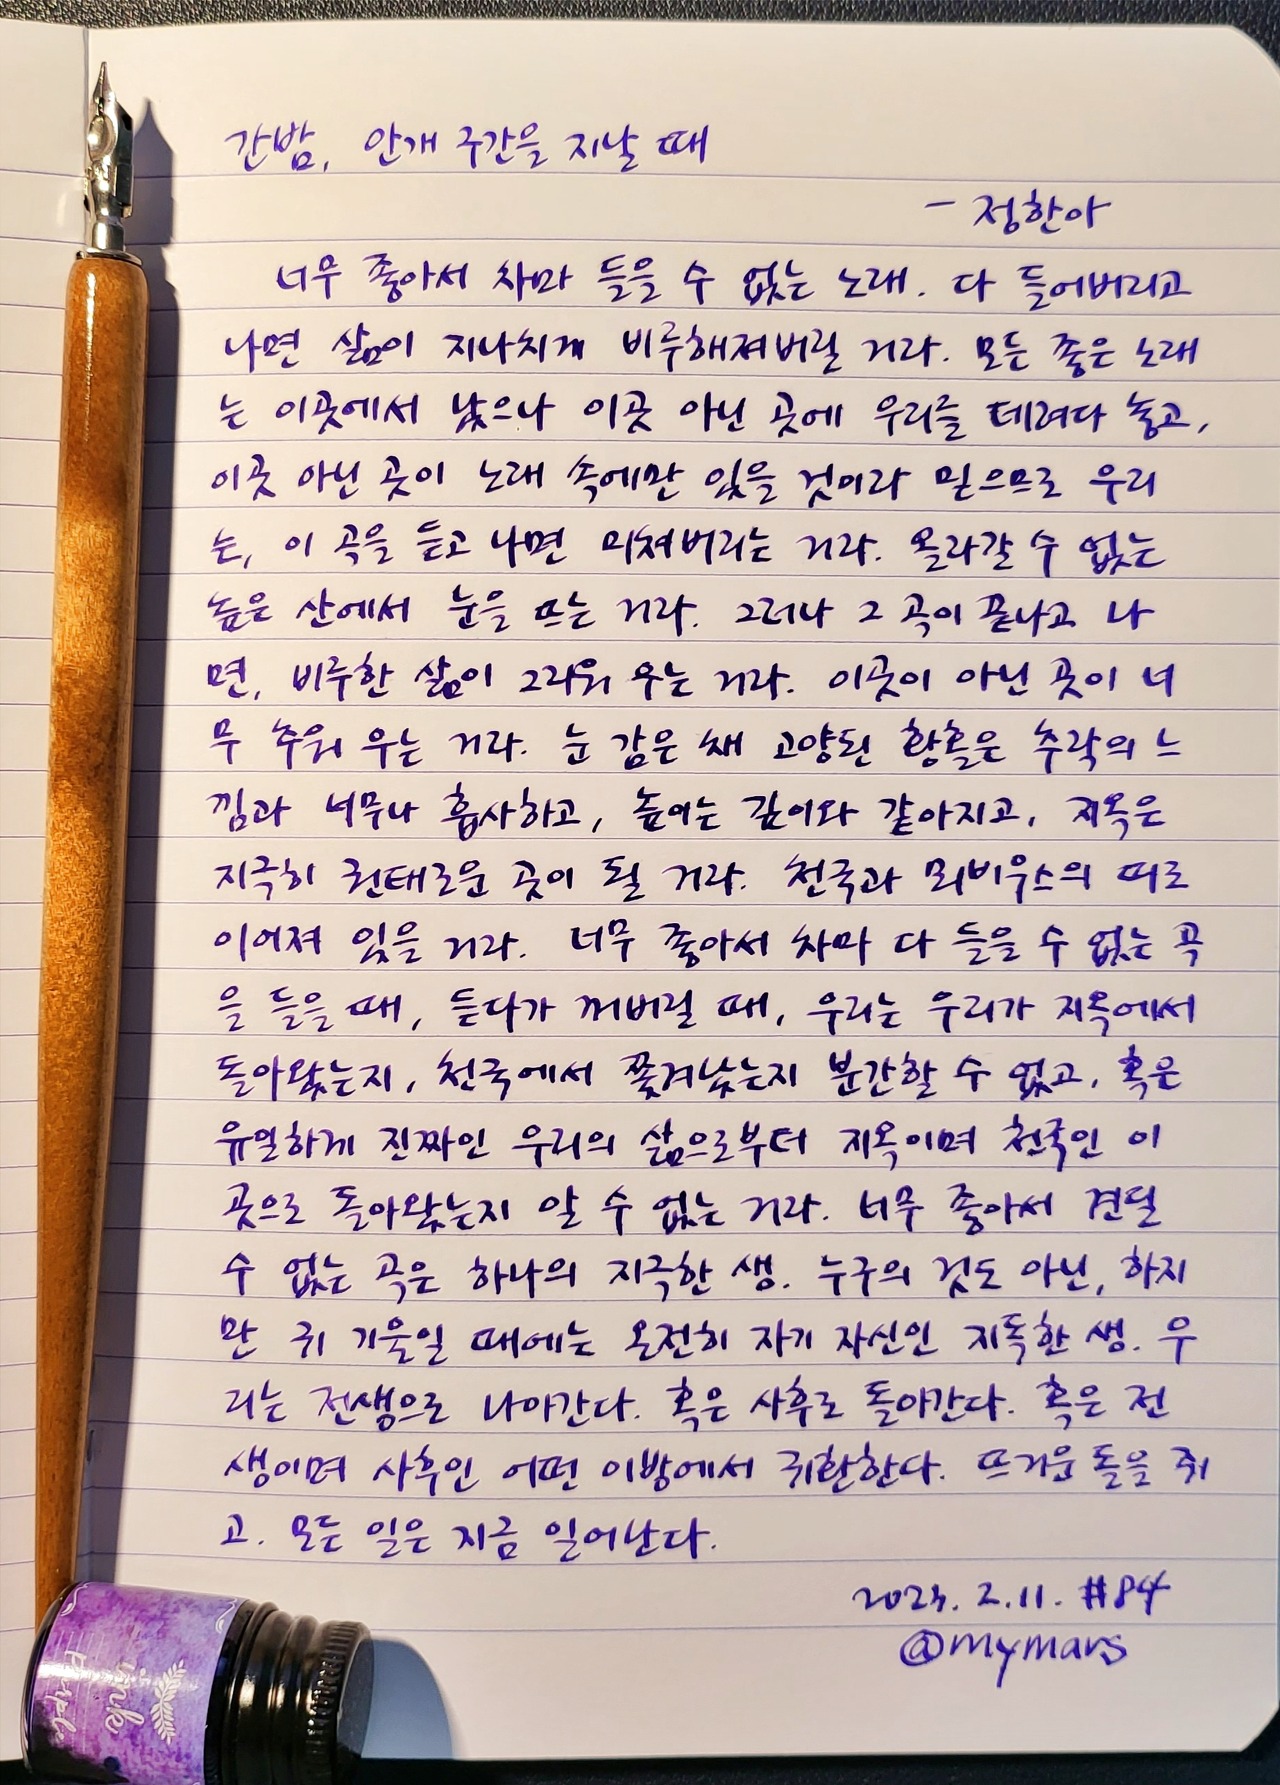 간밤, 안개 구간을 지날 때
- 정한아
너무 좋아서 차마 들을 수 없는 노래. 다 들어버리고
나면 삶이 지나치게 비루해져버릴 거라. 모든 좋은 노래
는 이곳에서 났으나 이곳 아닌 곳에 우리를 데려다 놓고,
이곳 아닌 곳이 노래 속에만 있을 것이라 믿으므로 우리
는, 이 곡을 듣고 나면 미쳐버리는 거라. 올라갈 수 없는
높은 산에서 눈을 뜨는 거라. 그러나 그 곡이 끝나고 나
면, 비루한 삶이 그리워 우는 거라. 이곳이 아닌 곳이 너
무 추워 우는 거라. 눈 감은 채 고양된 황홀은 추락의 느
낌과 너무나 흡사하고, 높이는 깊이와 같아지고, 지옥은
지극히 권태로운 곳이 될 거라. 천국과 뫼비우스의 띠로
이어져 있을 거라. 너무 좋아서 차마 다 들을 수 없는 곡
을 들을 때, 듣다가 꺼버릴 때, 우리는 우리가 지옥에서
돌아왔는지, 천국에서 쫓겨났는지 분간할 수 없고, 혹은
유일하게 진짜인 우리의 삶으로부터 지옥이며 천국인 이
곳으로 돌아왔는지 알 수 없는 거라. 너무 좋아서 견딜
수 없는 곡은 하나의 지극한 생. 누구의 것도 아닌, 하지
만 귀 기울일 때에는 온전히 자기 자신인 지독한 생. 우
리는 전생으로 나아간다. 혹은 사후로 돌아간다. 혹은 전
생이며 사후인 어떤 이방에서 귀환한다. 뜨거운 돌을 쥐
고. 모든 일은 지금 일어난다.
2023. 2.11. #84
@mymars
ink
Purple